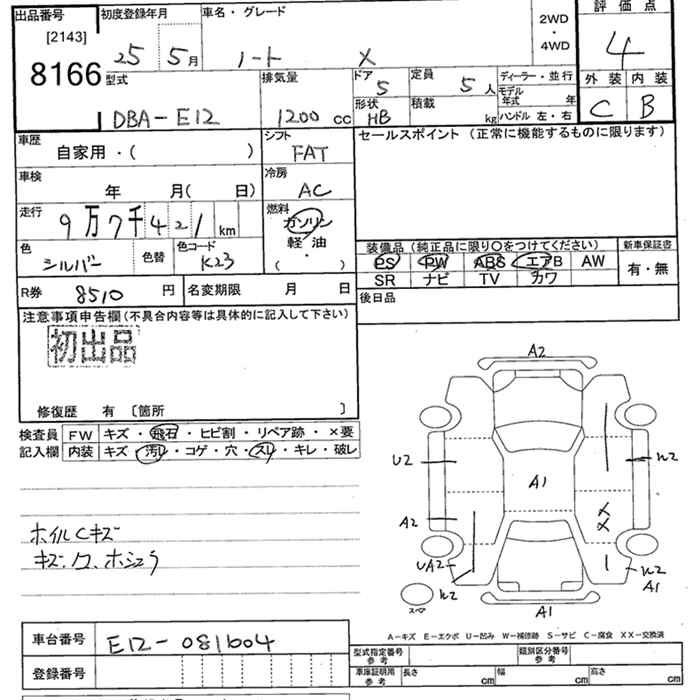 出品番号 初度登録年月 車名・グレード 2WD・4WD 評価点
[2143] 25 5月 ノート X 4
8166 型式 排気量 ドア 5 定員 5人 ディーラー・並行 外装 内装
DBA-E12 1200cc 形状 HB 積載 kg モデル年式 年 ハンドル 左・右 C B
車歴 自家用・( ) シフト FAT セールスポイント (正常に機能するものに限ります)
車検 年 月( 日) 冷房 AC
走行 9万7千421km 燃料 ガソリン 軽油・( )
色 シルバー 色替 色コード K23
装備品 (純正品に限り○をつけてください) 新車保証書
PS PW ABS エアB AW 有・無
SR ナビ TV カワ
R券 8510円 名変期限 月 日 後日品
注意事項申告欄 (不具合内容等は具体的に記入して下さい)
初出品
修復歴 有 〔箇所 〕
検査員 FW キズ・飛石・ヒビ割・リペア跡・×要
記入欄 内装 キズ・汚れ・コゲ・穴・スレ・キレ・破レ
ホイルCキズ
キズ.ワ.ホシュウ
A2
U2
W2
A1
A2
X
X
UA2
W2
W2
A1
スペア
A1
A-キズ E-エクボ U-凹み W-補修跡 S-サビ C-腐食 XX-交換済
車台番号 E12-081604
型式指定番号 参考 類別区分番号 参考
登録番号 車庫証明用 参考 長さ cm 幅 cm 高さ cm